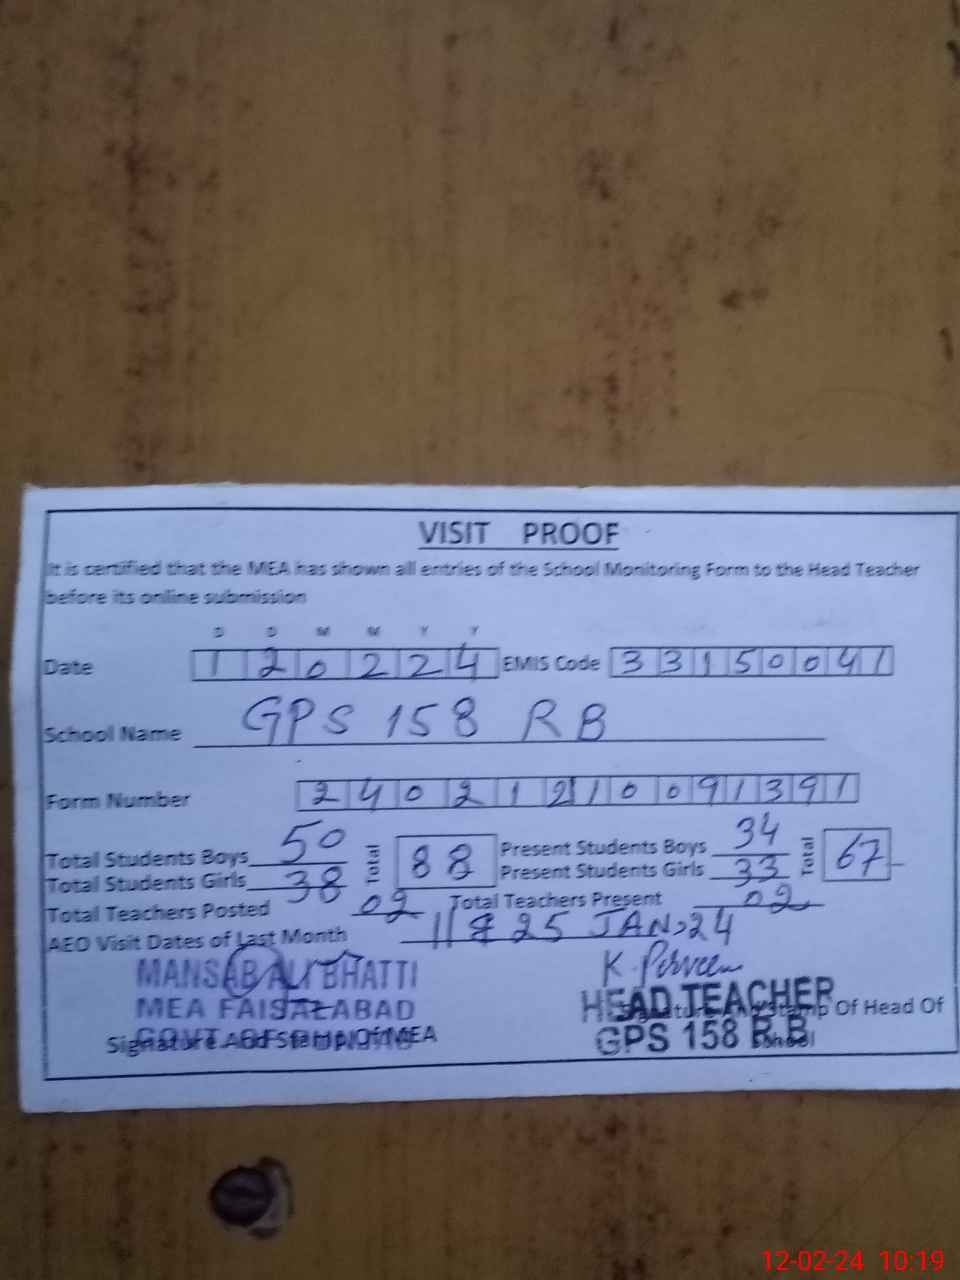 VISIT PROOF
It is certified that the MEA has shown all entries of the School Monitoring Form to the Head Teacher
before its online submission
D D M M Y Y
Date 120224 EMIS Code 33150041
School Name GPS 158 RB
Form Number 24021210091391
Total Students Boys 50 Total 88 Present Students Boys 34 Total 67
Total Students Girls 38 Present Students Girls 33
Total Teachers Posted 02 Total Teachers Present 02
AEO Visit Dates of Last Month 11 & 25 JAN, 24
MANSAB ALI BHATTI K. Perveen
MEA FAISALABAD HEAD TEACHER
Signature And Stamp Of Head Of
GOVT. OF GPS 158 R.B
Signature And Stamp Of MEA School
12-02-24 10:19